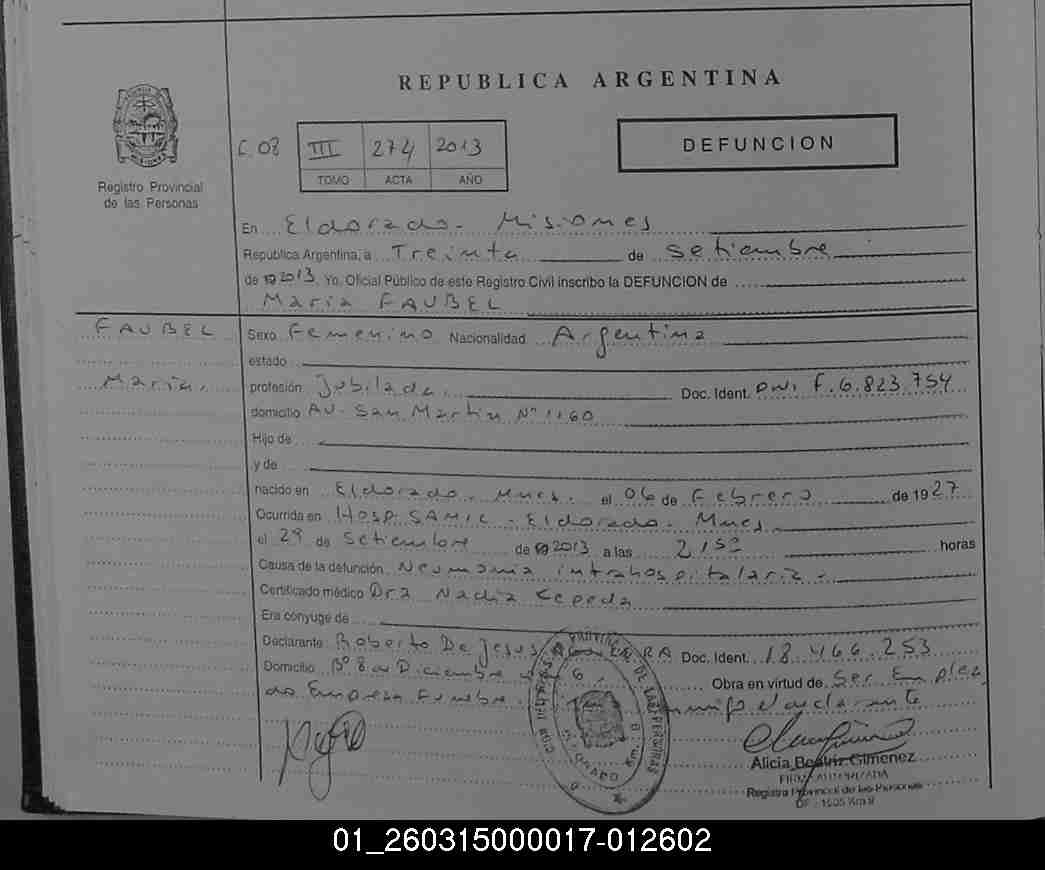 REPUBLICA ARGENTINA
Registro Provincial
de las Personas
C. 08
III 274 2013
TOMO ACTA AÑO
DEFUNCION
En Eldorado. Misiones
República Argentina, a Treinta de Setiembre
de 2013. Yo, Oficial Público de este Registro Civil inscribo la DEFUNCION de
Maria FAUBEL
FAUBEL
Maria.
Sexo Femenino Nacionalidad Argentina
estado
profesión Jubilada. Doc. Ident. DNI F. 6.823.754
domicilio Av. San Martin N° 1160
Hijo de
y de
nacido en Eldorado. Mnes. el 06 de Febrero de 1927
Ocurrida en Hosp. SAMIC - Eldorado. Mnes.
el 29 de Setiembre de 2013 a las 21 50 horas
Causa de la defunción Neumonia intrahospitalaria -
Certificado médico Dra Nadia Cepeda
Era conyuge de
Declarante Roberto De Jesus Doc. Ident. 18.466.253
Domicilio B° 8 de Diciembre Obra en virtud de Ser Emplea
do Empresa Funebre. el declarante
Alicia Beatriz Gimenez
FIRMA AUTORIZADA
Registro Provincial de las Personas
OF - 1505 Km 9
01_260315000017-012602